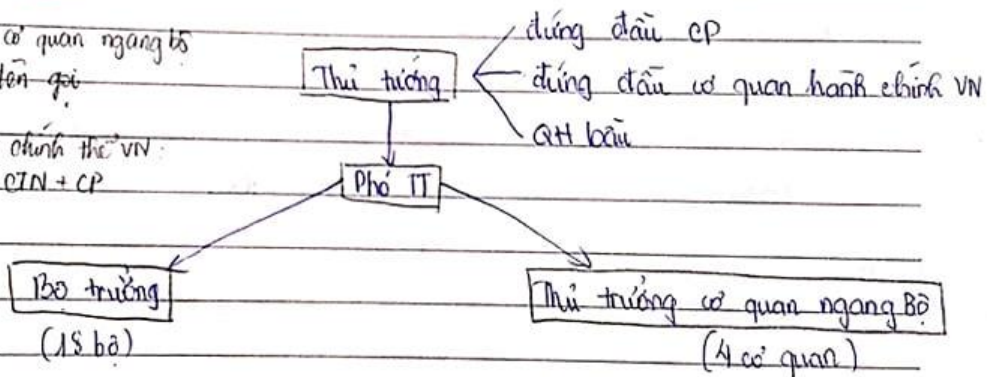 cơ quan ngang bộ
tên gọi
chính thể VN:
CTN + CP
Thủ tướng
đứng đầu CP
đứng đầu cơ quan hành chính VN
QH bầu
Phó TT
Bộ trưởng
(18 bộ)
Thủ trưởng cơ quan ngang Bộ
(4 cơ quan)